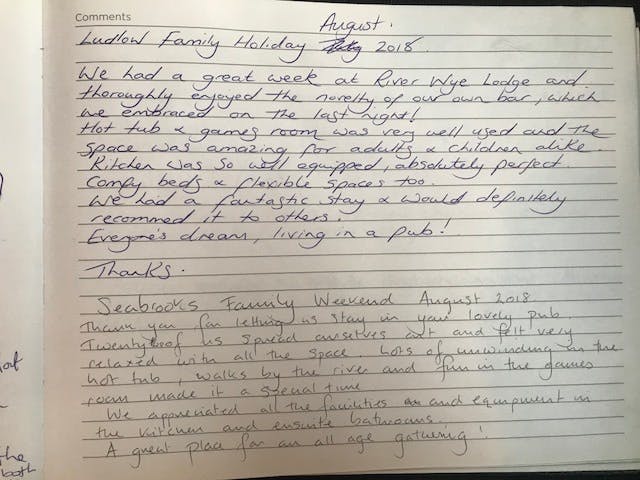 Comments
August.
Ludlow Family Holiday 2018.
We had a great week at River Wye Lodge and
thoroughly enjoyed the novelty of our own bar, which
we embraced on the last night!
Hot tub & games room was very well used and the
space was amazing for adults & children alike.
Kitchen was so well equipped, absolutely perfect.
Comfy beds & flexible spaces too.
We had a fantastic stay & would definitely
recommed it to others.
Everyone's dream, living in a pub!
Thanks.
Seabrooks Family Weekend August 2018
Thank you for letting us stay in your lovely pub.
Twenty of us spread ourselves out and felt very
relaxed with all the space. Lots of unwinding in the
hot tub, walks by the river and fun in the games
room made it a special time
We appreciated all the facilities and equipment in
the kitchen and ensuite bathrooms.
A great place for an all age gathering!
the
both